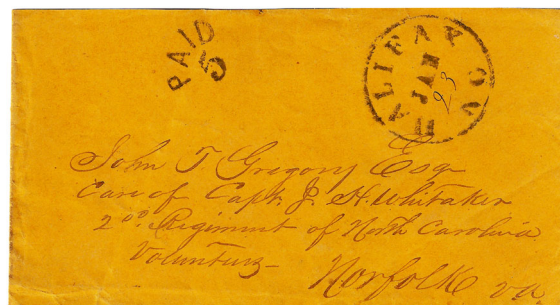 PAID 5
HALIFAX C.H. VA
JAN
23
John T Gregory Esqr
Care of Capt. J. H. Whitaker
2nd. Regiment of North Carolina
Volunturs
Norfolk Va